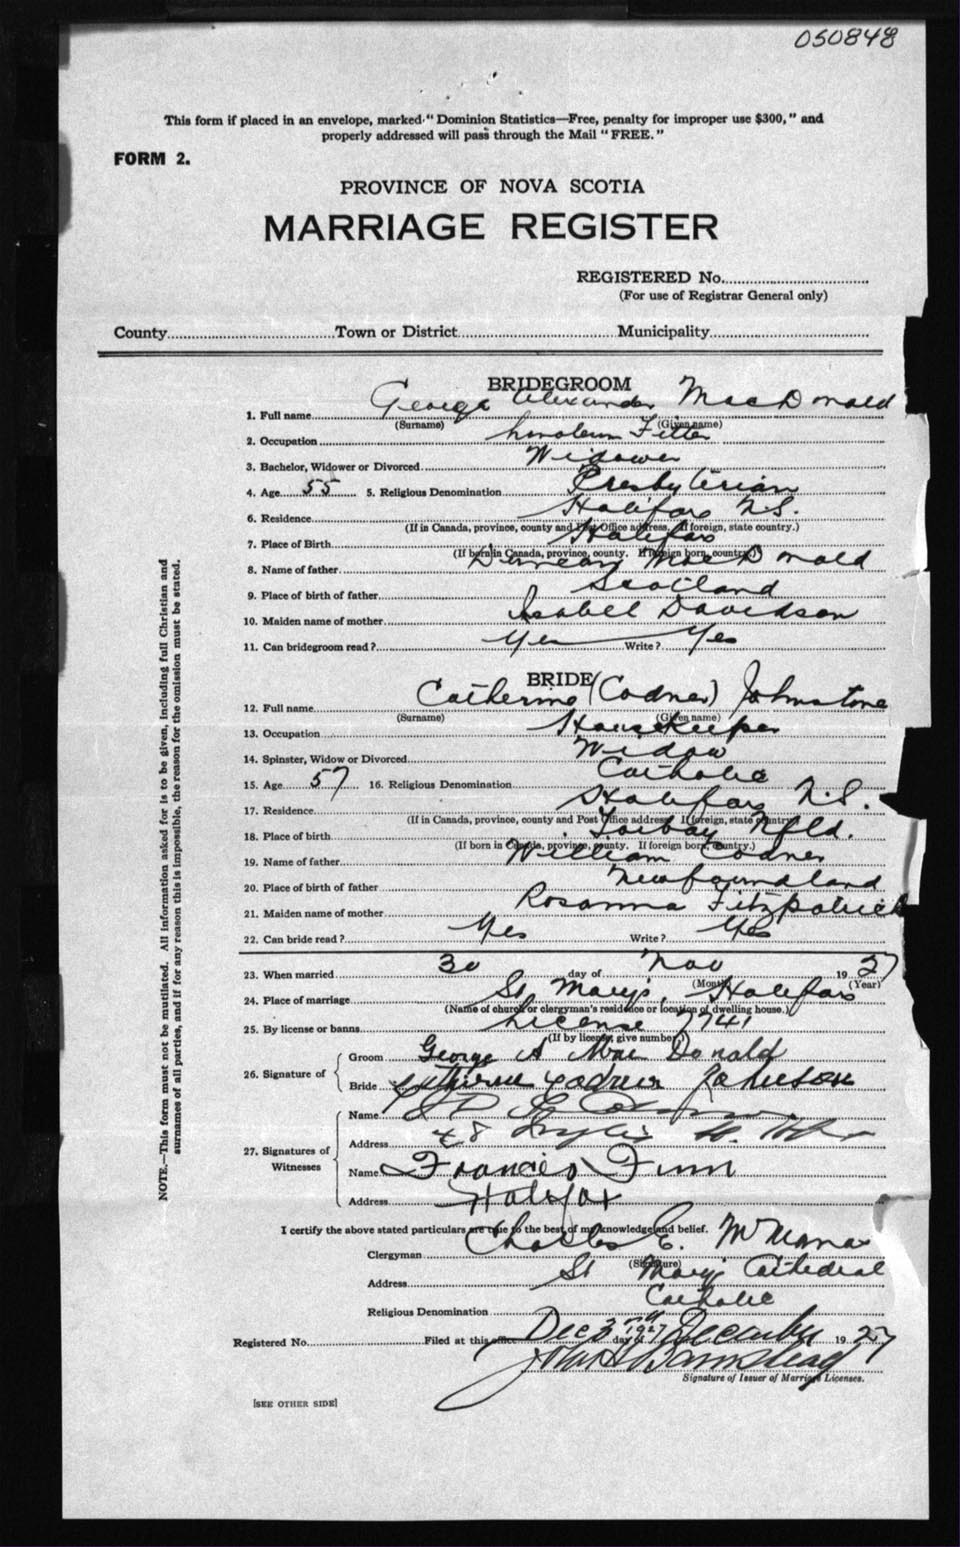 050848
This form if placed in an envelope, marked "Dominion Statistics—Free, penalty for improper use $300," and
properly addressed will pass through the Mail "FREE."
FORM 2.
PROVINCE OF NOVA SCOTIA
MARRIAGE REGISTER
REGISTERED No.
(For use of Registrar General only)
County Town or District Municipality
BRIDEGROOM
1. Full name George Alexander MacDonald
(Surname) (Given name)
2. Occupation Linoleum Fitter
3. Bachelor, Widower or Divorced Widower
4. Age 55 5. Religious Denomination Presbyterian
6. Residence Halifax N.S.
(If in Canada, province, county and Post Office address. If foreign, state country.)
7. Place of Birth Halifax
(If born in Canada, province, county. If foreign born, country.)
8. Name of father Duncan MacDonald
9. Place of birth of father Scotland
10. Maiden name of mother Isabel Davidson
11. Can bridegroom read? Yes Write? Yes
BRIDE
12. Full name Catherine (Codner) Johnstone
(Surname) (Given name)
13. Occupation Housekeeper
14. Spinster, Widow or Divorced Widow
15. Age 57 16. Religious Denomination Catholic
17. Residence Halifax N.S.
(If in Canada, province, county and Post Office address. If foreign, state country.)
18. Place of birth Torbay Nfld.
(If born in Canada, province, county. If foreign born, country.)
19. Name of father William Codner
20. Place of birth of father Newfoundland
21. Maiden name of mother Rosanna Fitzpatrick
22. Can bride read? Yes Write? Yes
23. When married 30 day of Nov 1927
(Month) (Year)
24. Place of marriage St Mary's, Halifax
(Name of church or clergyman's residence or location of dwelling house.)
25. By license or banns License 7741
(If by license, give number)
26. Signature of
Groom George A MacDonald
Bride Catherine Codner Johnson
27. Signatures of Witnesses
Name
Address 48
Name Francis Finn
Address Halifax
I certify the above stated particulars are true to the best of my knowledge and belief.
Clergyman Charles E. McManus
(Signature)
Address St Mary's Cathedral
Religious Denomination Catholic
Registered No. Filed at this office Dec 3rd 1927 day of December 1927
Signature of Issuer of Marriage Licenses.
[SEE OTHER SIDE]
NOTE.—This form must not be mutilated. All information asked for is to be given, including full Christian and
surnames of all parties, and if for any reason this is impossible, the reason for the omission must be stated.